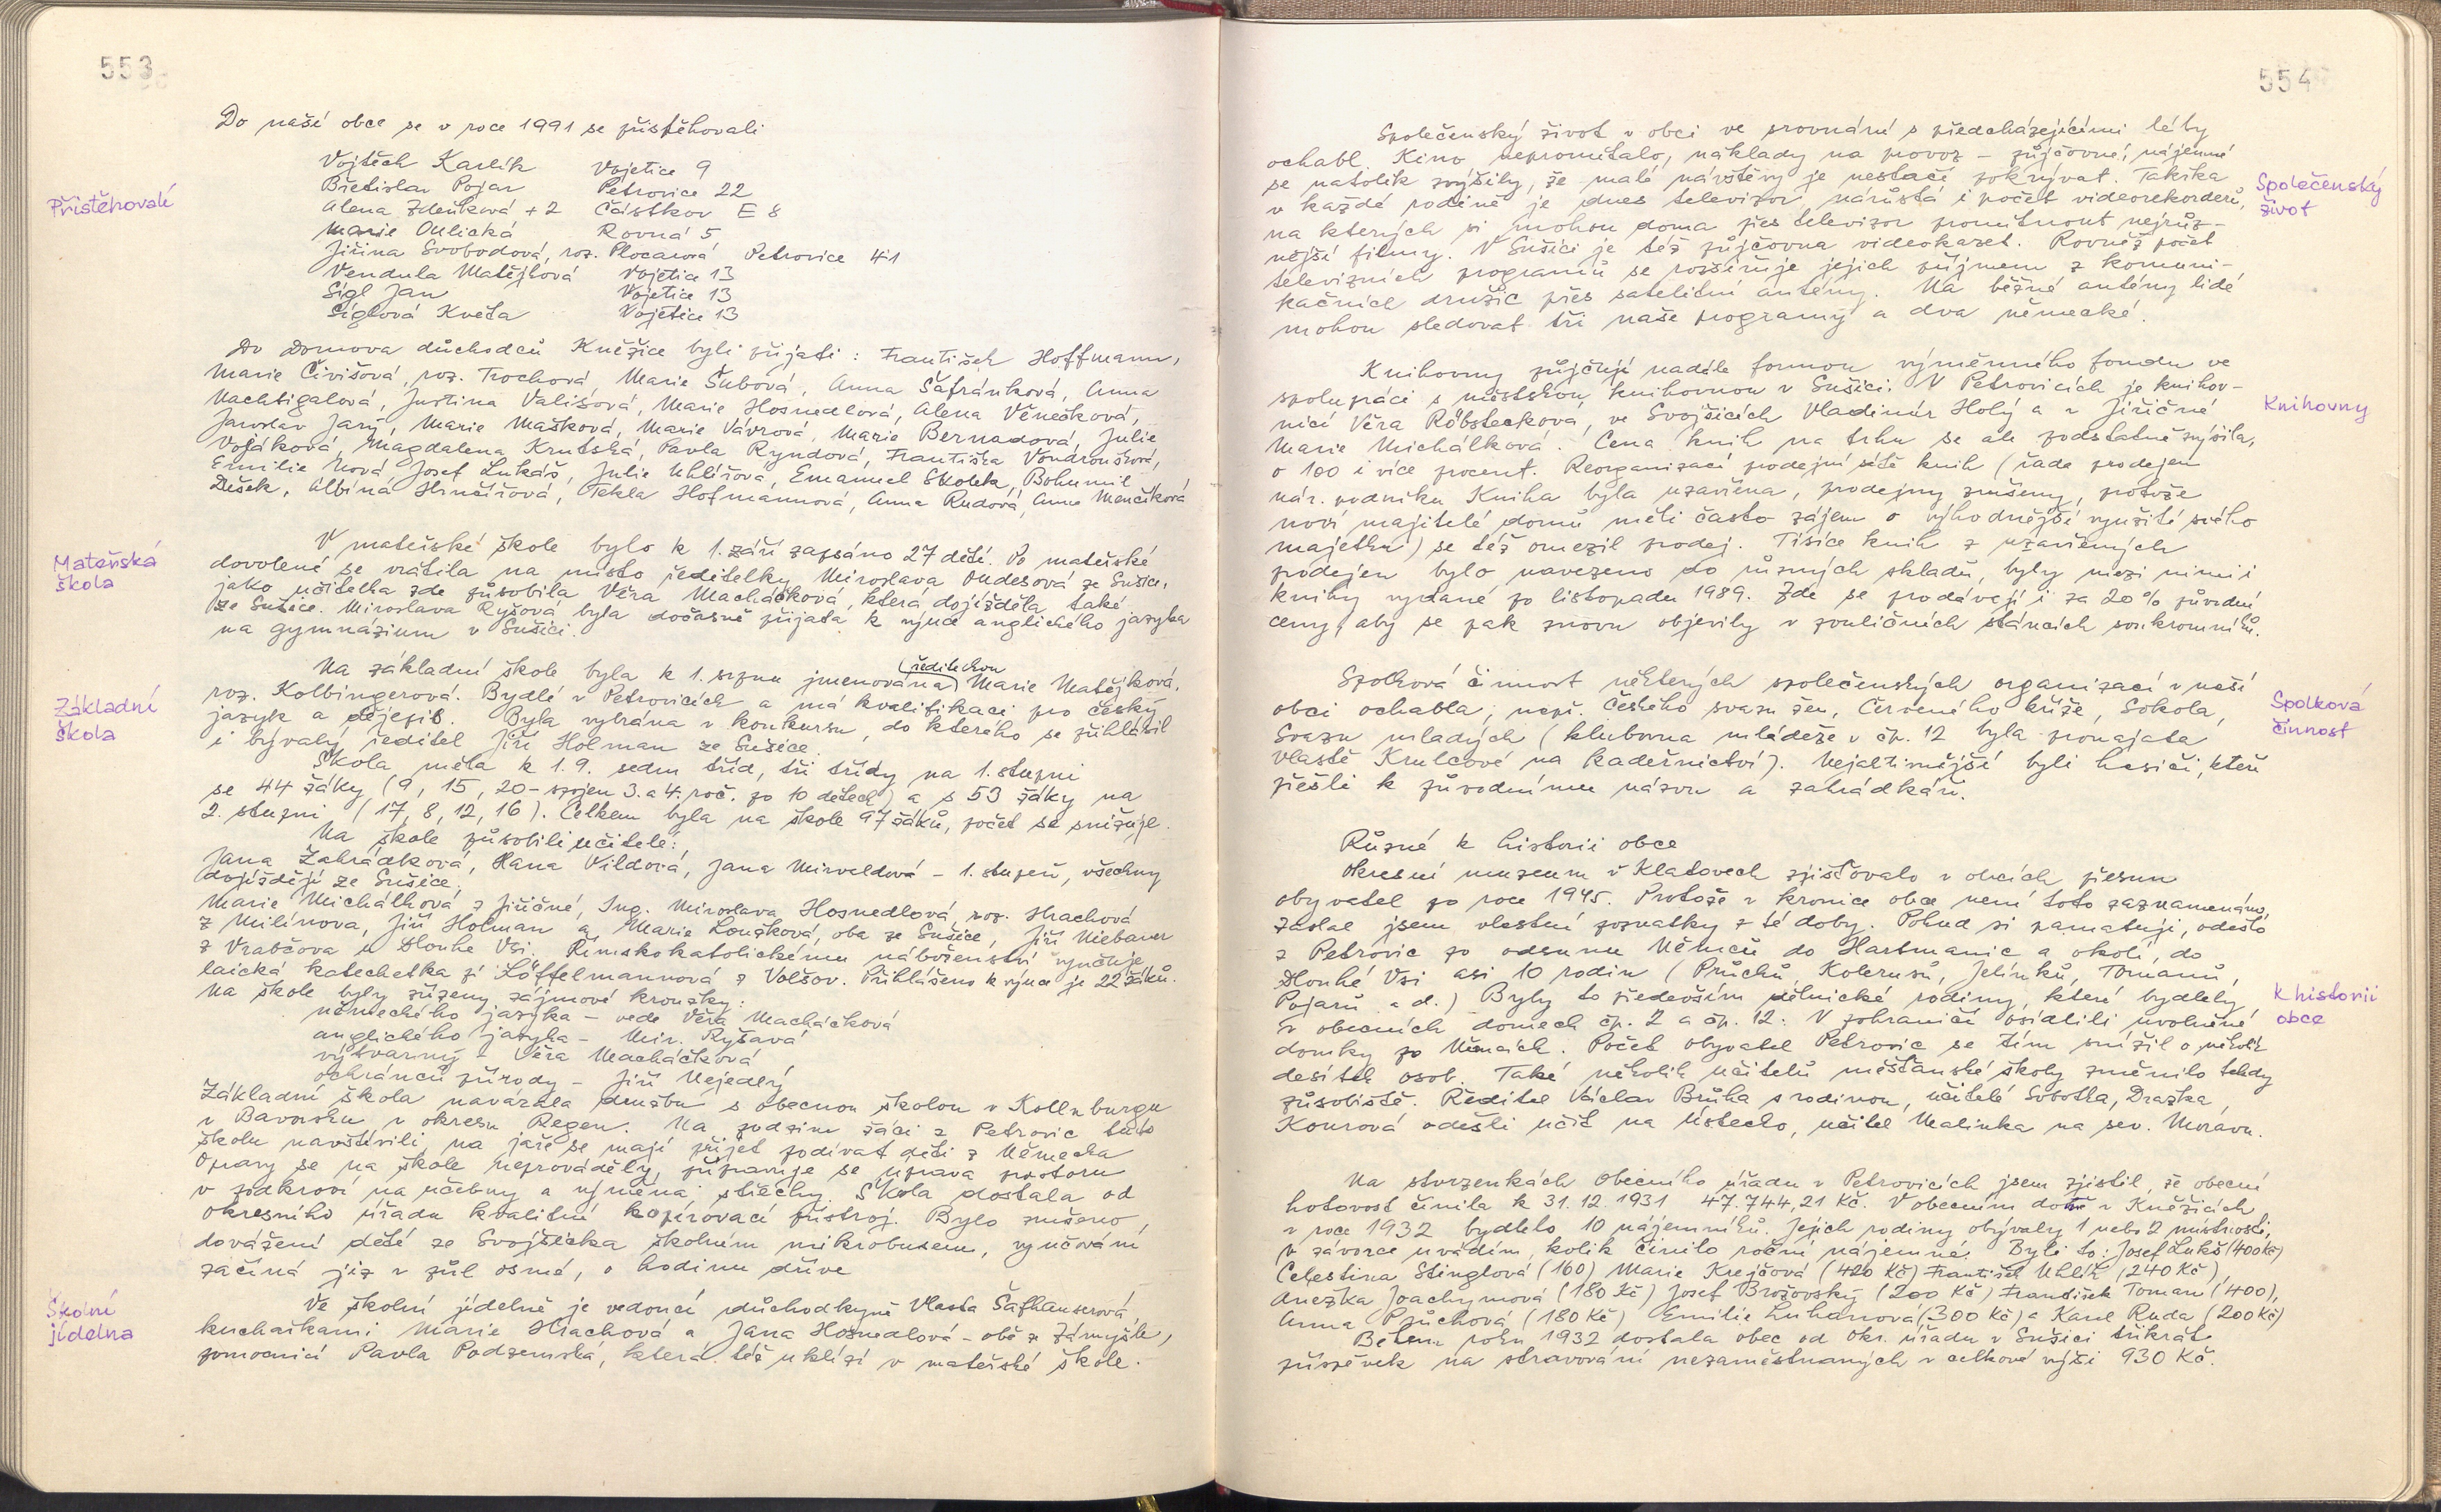 553
Do naší obce se v roce 1991 se přistěhovali
Přistěhovalí
Vojtěch Karlík Vojetice 9
Břetislav Pojar Petrovice 22
Alena Zdeňková + 2 Částkov E 8
Marie Oulická Rovná 5
Jiřina Svobodová, roz. Plocarová Petrovice 41
Vendula Matějková Vojetice 13
Sigl Jan Vojetice 13
Siglová Květa Vojetice 13
Do Domova důchodců Kněžice byli přijati : František Hoffmann,
Marie Čivišová, roz. Trochová, Marie Šubová, Anna Šafránková, Anna
Nachtigalová, Justina Vališová, Marie Hosnedlová, Alena Věnečková,
Jaroslav Jarý, Marie Mašková, Marie Vávrová, Marie Bernadová, Julie
Vojáková, Magdalena Krutská, Pavla Ryndová, Františka Vondroušková,
Emilie Nová, Josef Lukáš, Julie Uhlířová, Emanuel Skolek, Bohumil
Dešek, Albína Hrnčířová, Tekla Hofmannová, Anna Rudová, Anna Menčíková
Mateřská
škola
V mateřské škole bylo k 1. září zapsáno 27 dětí. Po mateřské
dovolené se vrátila na místo ředitelky Miroslava Ondesová ze Sušice,
jako učitelka zde působila Věra Macháčková, která dojížděla také
ze Sušice. Miroslava Ryšová byla dočasně přijata k výuce anglického jazyka
na gymnázium v Sušici.
Základní
škola
Na základní škole byla k 1. srpnu jmenována (ředitelkou) Marie Matějková,
roz. Kolbingerová. Bydlí v Petrovicích a má kvalifikaci pro český
jazyk a dějepis. Byla vybrána v konkursu, do kterého se přihlásil
i bývalý ředitel Jiří Holman ze Sušice.
Škola měla k 1.9. sedm tříd, tři třídy na 1. stupni
se 44 žáky (9, 15, 20 - spojen 3. a 4. roč. po 10 dětech) a s 53 žáky na
2. stupni (17, 8, 12, 16). Celkem bylo na škole 97 žáků, počet se snižuje.
Na škole působili učitelé:
Jana Zahrádková, Hana Vildová, Jana Mirvaldová - 1. stupeň, všechny
dojíždějí ze Sušice,
Marie Michálková z Jiřičné, Ing. Miroslava Hosnedlová, roz. Hrachová
z Milínova, Jiří Holman a Marie Louzková, oba ze Sušice, Jiří Niebauer
z Vrabčova u Dlouhé Vsi. Římskokatolickému náboženství vyučuje
laická katechetka pí Löffelmannová z Volšov. Přihlášeno k výuce je 22 žáků.
Na škole byly zřízeny zájmové kroužky:
německého jazyka - vede Věra Macháčková
anglického jazyka - Mir. Ryšavá
výtvarný - Věra Macháčková
ochránců přírody - Jiří Nejedlý
Základní škola navázala družbu s obecnou školou v Kollnburgu
v Bavorsku v okresu Regen. Na podzim žáci z Petrovic tuto
školu navštívili, na jaře se mají přijet podívat děti z Německa
Opravy se na škole neprováděly, připravuje se úprava prostoru
v podkroví na učebny a výměna střechy. Škola dostala od
okresního úřadu kvalitní kopírovací přístroj. Bylo zrušeno
dovážení dětí ze Svojšicka školním mikrobusem, vyučování
začíná již v půl osmé, o hodinu dříve
Školní
jídelna
Ve školní jídelně je vedoucí důchodkyně Vlasta Šafhauserová
kuchařkami Marie Hrachová a Jana Hosnedlová - obě z Zámyšle,
pomocnicí Pavla Podzemská, která též uklízí v mateřské škole.
554
Společenský život v obci ve srovnání s předcházejícími léty
ochabl. Kino nepromítalo, náklady na provoz - půjčovné, nájemné
se natolik zvýšily, že malé návštěvy je nestačí pokrývat. Takřka
v každé rodině je dnes televizor, narůstá i počet videorekorderů,
Společenský
život
na kterých si mohou doma přes televizor promítnout nejrůz-
nější filmy. V Sušici je též půjčovna videokazet. Rovněž počet
televizních programů se rozšiřuje jejich příjmem z komuni-
kačních družic přes satelitní antény. Na běžné antény lidé
mohou sledovat tři naše programy a dva německé.
Knihovny půjčují nadále formou výměnného fondu ve
spolupráci s městskou knihovnou v Sušici. V Petrovicích je knihov-
nicí Věra Röbstecková, ve Svojšicích Vladimír Holý a v Jiřičné
Knihovny
Marie Michálková. Cena knih na trhu se ale podstatně zvýšila,
o 100 i více procent. Reorganizací prodejní sítě knih (řada prodejen
nár. podniku Kniha byla uzavřena, prodejny zrušeny, protože
noví majitelé domů měli často zájem o výhodnější využití svého
majetku) se též omezil prodej. Tisíce knih z uzavřených
prodejen bylo navezeno do různých skladů, byly mezi nimi i
knihy vydané po listopadu 1989. Zde se prodávají i za 20% původní
ceny, aby se pak znovu objevily v pouličních stáncích soukromníků.
Spolková činnost některých společenských organizací v naší
obci ochabla, např. Českého svazu žen, Červeného kříže, Sokola,
Spolková
činnost
Svazu mladých (klubovna mládeže v čp. 12 byla pronajata
Vlastě Krulcové na kadeřnictví). Nejaktivnější byli hasiči, kteří
přešli k původnímu názvu a zahrádkáři.
Různé k historii obce
Okresní muzeum v Klatovech zjišťovalo v obcích přesun
obyvatel po roce 1945. Protože v kronice obce není toto zaznamenáno,
zaslal jsem vlastní poznatky z té doby. Pokud si pamatuji, odešlo
z Petrovic po odsunu Němců do Hartmanic a okolí, do
Dlouhé Vsi asi 10 rodin (Průchů, Kolerusů, Jelínků, Tomanů,
Pojarů a d.) Byly to především dělnické rodiny, které bydlely
K historii
obce
v obecních domech čp. 2 a čp. 12. V pohraničí osídlili uvolněné
domky po Němcích. Počet obyvatel Petrovic se tím snížil o několik
desítek osob. Také několik učitelů měšťanské školy změnilo tehdy
působiště. Ředitel Václav Brůha s rodinou, učitelé Sobotka, Drazka,
Kourová odešli učit na Ústecko, učitel Malinka na sev. Moravu.
Na stvrzenkách Obecního úřadu v Petrovicích jsem zjistil, že obecní
hotovost činila k 31.12.1931 47.744,21 Kč. V obecním domě v Kněžicích
v roce 1932 bydlelo 10 nájemníků. Jejich rodiny obývaly 1 nebo 2 místnosti,
v závorce uvádím, kolik činilo roční nájemné. Byli to: Josef Lukš (400 Kč)
Celestina Stinglová (160) Marie Krejčová (420 Kč) František Uhlík (240 Kč)
Anežka Joachymová (180 Kč) Josef Brožovský (200 Kč) František Toman (400),
Anna Průchová (180 Kč) Emilie Luhanová (300 Kč) a Karel Ruda (200 Kč)
Během roku 1932 dostala obec od okr. úřadu v Sušici třikrát
příspěvek na stravování nezaměstnaných v celkové výši 930 Kč.